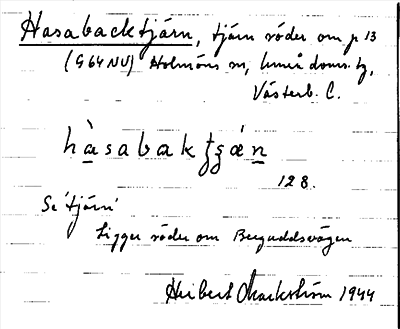 Hasabacktjärn, tjärn söder om p 13
(G64NV) Holmöns sn, Umeå doms. tg,
Västerb. L.
hàsabaktʂæ̀n
128.
Se 'tjärn'
Ligger söder om Berguddsvägen
Heribert Mackström 1944